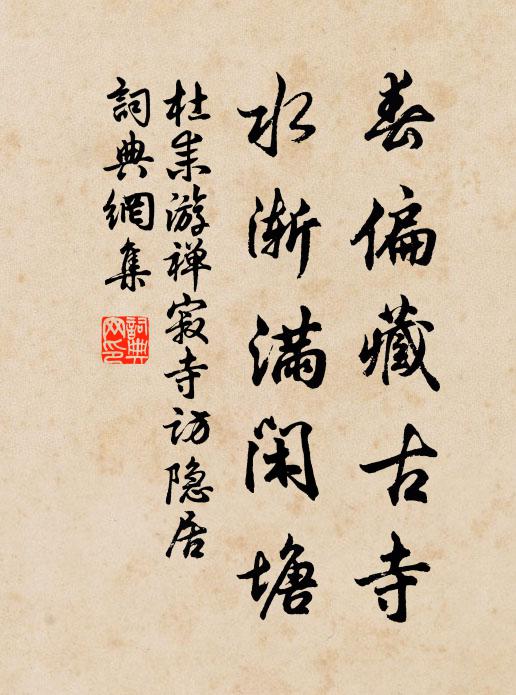 春偏藏古寺
水渐满闲塘
杜耒游禅寂寺访隐居
詞典網集
詞典
网印